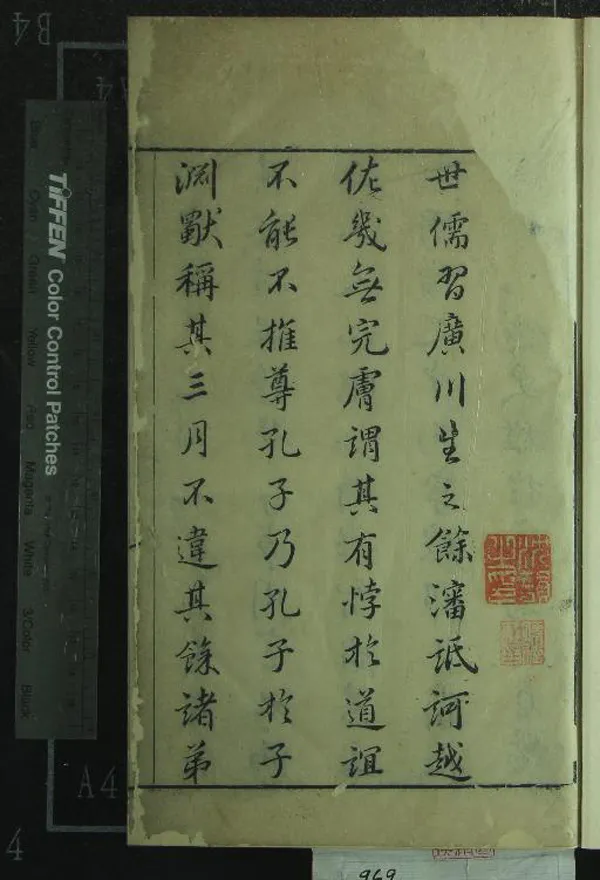 世儒習廣川生之餘瀋詆訶越
佐幾無完膚謂其有悖於道誼
不能不推尊孔子乃孔子於子
淵獸稱其三月不違其餘諸弟
TIFFEN Color Control Patches
Blue
Cyan
Green
Yellow
Red
Magenta
White
3/Color
Black
B4
A4
A4
4
969